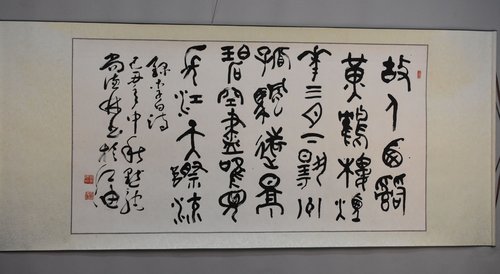 故人西辭
黃鶴樓煙
華三月下揚州
孤帆遠景
碧空盡唯見
長江天際流
錄李白詩
己丑年中秋
尚書於